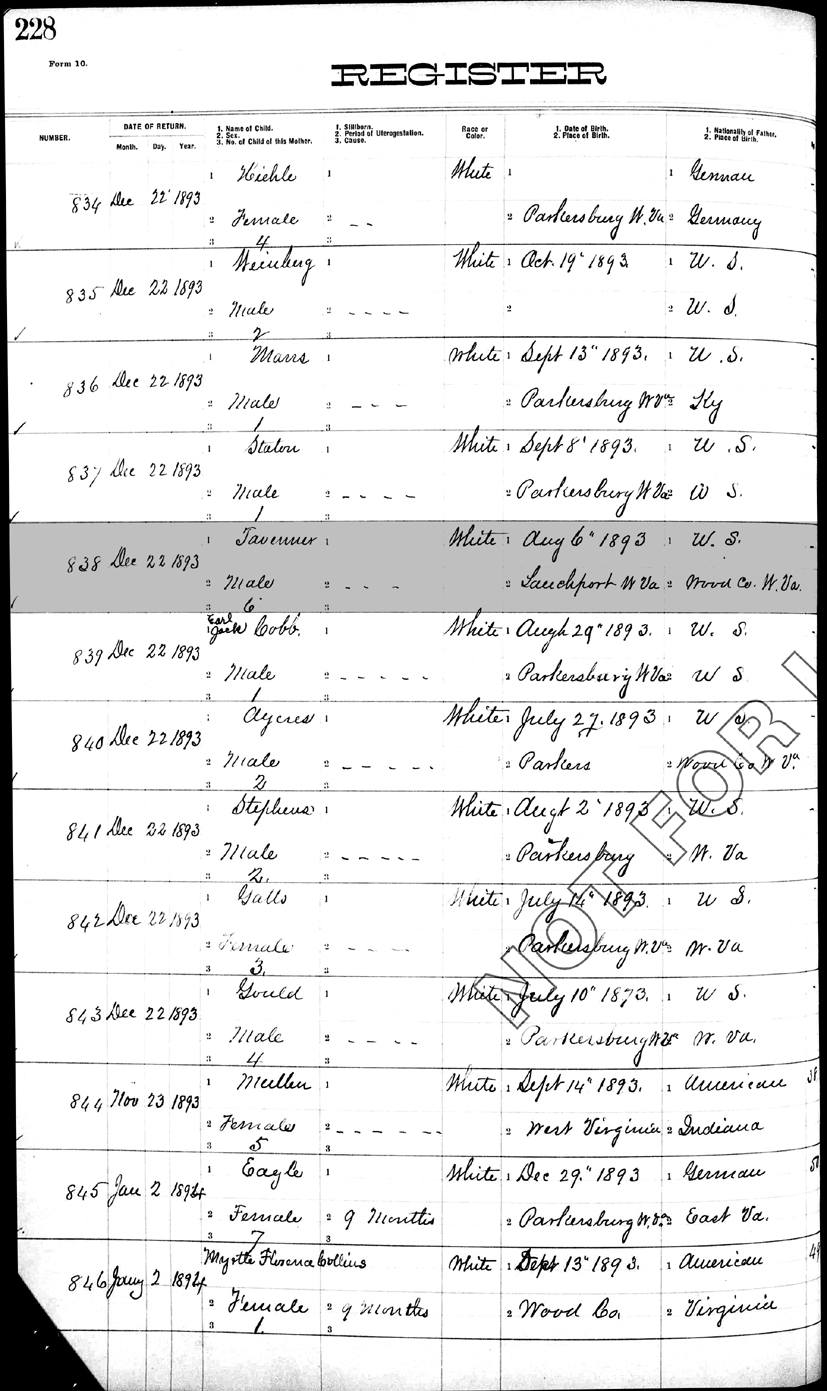 228
Form 10.
REGISTER
NUMBER. DATE OF RETURN. Month. Day. Year. 1. Name of Child. 2. Sex. 3. No. of Child of this Mother. 1. Stillborn. 2. Period of Uterogestation. 3. Cause. Race or Color. 1. Date of Birth. 2. Place of Birth. 1. Nationality of Father. 2. Place of Birth.
1 Hiehle 1 White 1 1 German
834 Dec 22 1893
2 Female 2 – – 2 Parkersburg W. Va 2 Germany
3 4 3
1 Weinberg 1 White 1 Oct. 19" 1893. 1 U. S.
835 Dec 22 1893
2 Male 2 – – – – 2 2 U. S.
3 2 3
1 Marrs 1 White 1 Sept 13" 1893. 1 U. S.
836 Dec 22 1893
2 Male 2 – – – 2 Parkersburg W Va 2 Ky
3 1 3
1 Staton 1 White 1 Sept 8' 1893. 1 U. S.
837 Dec 22 1893
2 Male 2 – – – – 2 Parkersburg W Va 2 U S.
3 1 3
1 Tavenner 1 White 1 Aug 6" 1893 1 U. S.
838 Dec 22 1893
2 Male 2 – – – 2 W Va 2 Wood Co. W. Va.
3 6 3
1 Earl Jack Cobb. 1 White 1 29" 1893. 1 U. S.
839 Dec 22 1893
2 Male 2 – – – – – 2 Parkersburg W Va 2 U S
3 1 3
1 Aycres 1 White 1 July 27, 1893 1 U S
840 Dec 22 1893
2 Male 2 – – – – – 2 Parkers 2 Wood Co W Va.
3 2 3
1 Stephens 1 White 1 Augt 2' 1893 1 U. S.
841 Dec 22 1893
2 Male 2 – – – – – 2 Parkersburg 2 W. Va
3 2. 3
1 Galls 1 White 1 July 14" 1893. 1 U S.
842 Dec 22 1893
2 Female 2 – – – – 2 Parkersburg W. Va 2 W. Va
3 3. 3
1 Gould 1 White 1 July 10" 1893. 1 U S.
843 Dec 22 1893
2 Male 2 – – – – 2 Parkersburg W Va 2 W. Va.
3 4 3
1 Mullen 1 White 1 Sept 14" 1893. 1 American
844 Nov 23 1893
2 Female 2 – – – – – – 2 West Virginia 2 Indiana
3 5 3
1 Eagle 1 White 1 Dec 29." 1893 1 German
845 Jan 2 1894
2 Female 2 9 Months 2 Parkersburg W. Va. 2 East Va.
3 7 3
Myrtle Florence Collins White 1 Sept 13" 1893. 1 American
846 Jany 2 1894
2 Female 2 9 Months 2 Wood Co. 2 Virginia
3 1. 3
NOT FOR